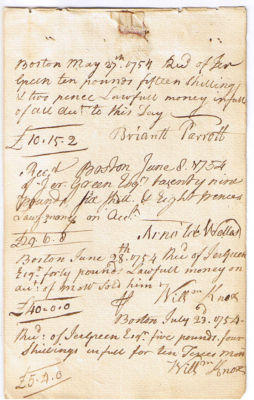 Boston May 27th 1754 Recd of Jer
Green ten pounds fifteen Shilling
& two pence Lawfull money in full
of all acts to this Day
£10.15.2 Briant Parrott
Recd Boston June 8. 1754
of Jer. Green Esqr twenty nine
pounds six shill. & Eight pence
Lawf money on Acct
£29.6.8 Arnold Welles
Boston June 28th 1754 Recd of Jer Green
Esqr forty pounds Lawfull money on
acct. of Mo sold him
£40.0.0 Willm Knox
Boston July 23d 1754
Recd. of Jer Green Esqr. five pounds four
Shillings in full for ten
£5.4.0 Willm Knox